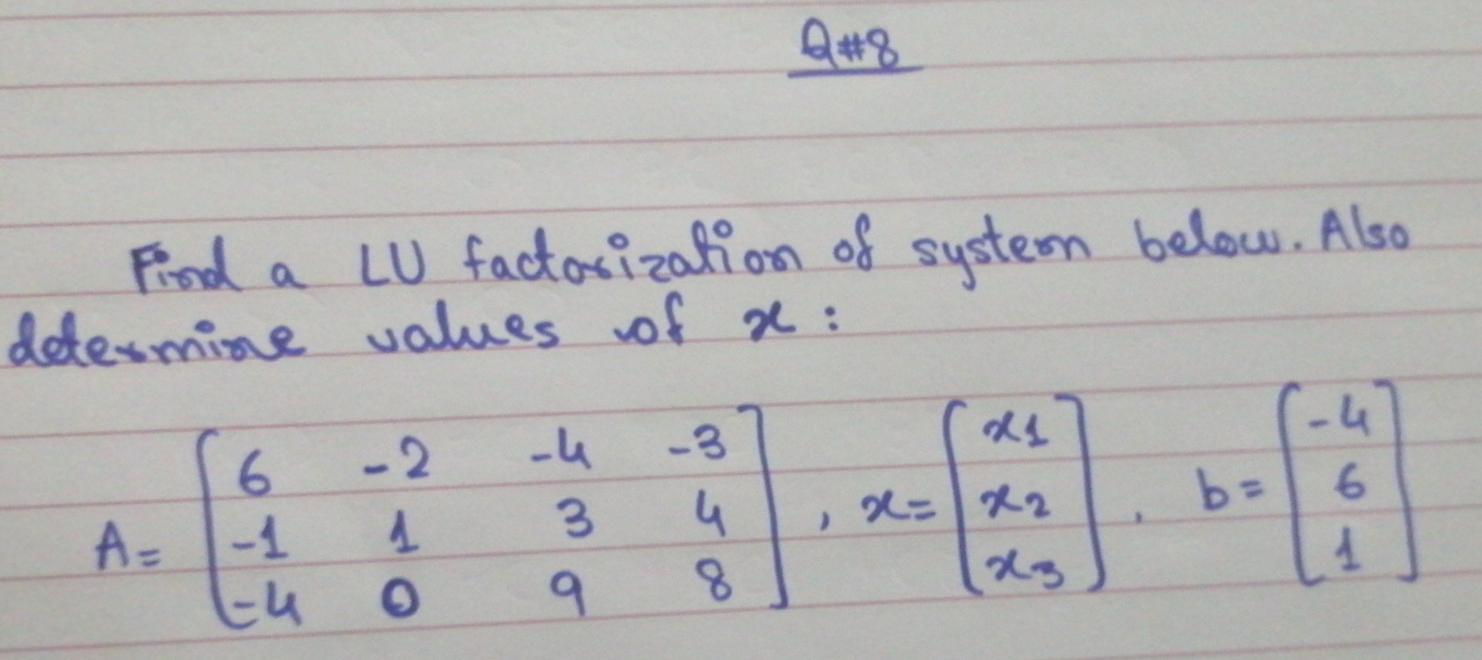 Q#8
Find a LU factorization of system below. Also
determine values of x:
A= [6 -2 -4 -3
-1 1 3 4
-4 0 9 8], x= [x1
x2
x3], b= [-4
6
1]